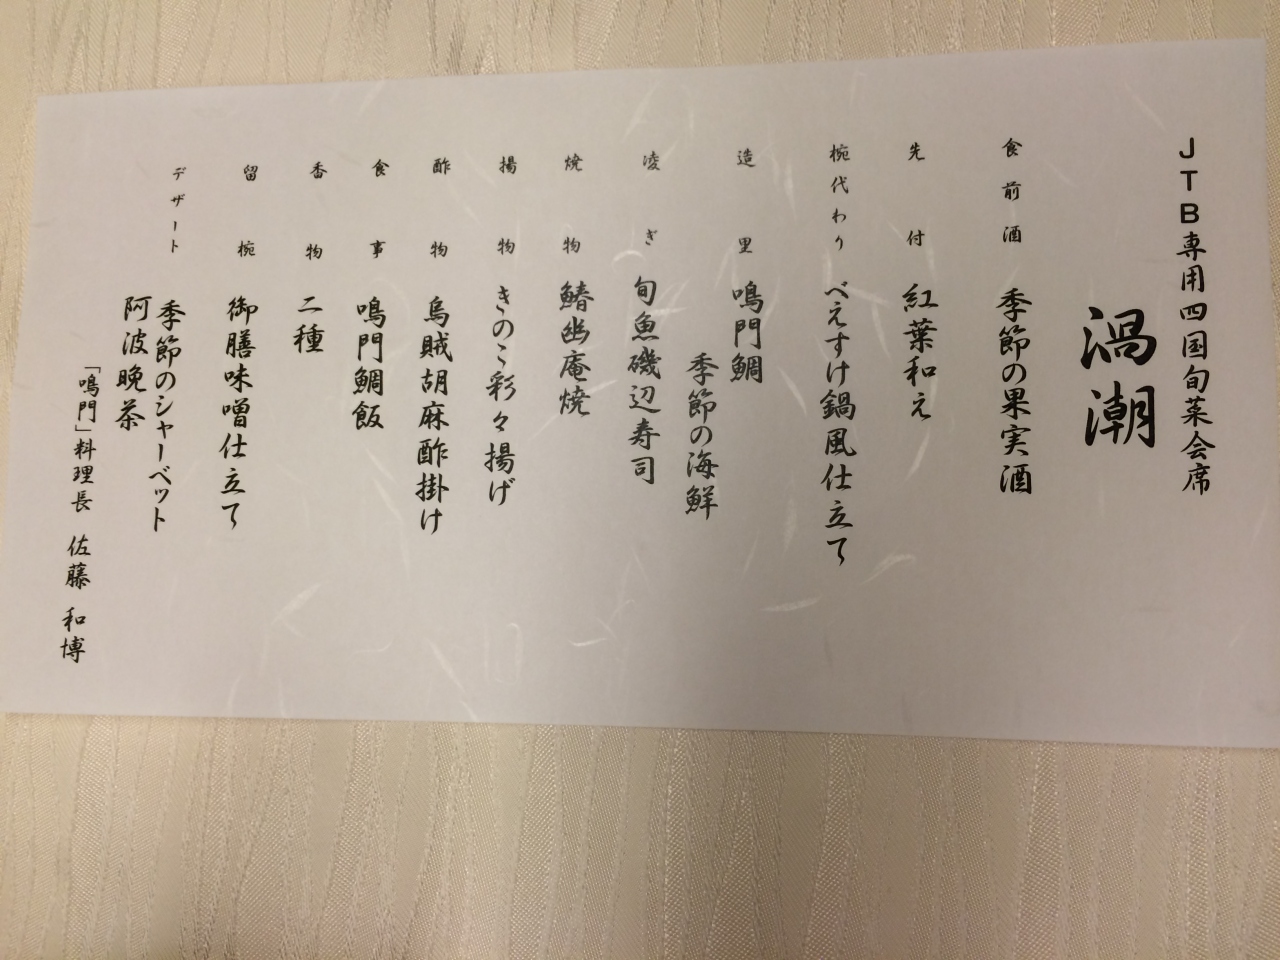 JTB専用四国旬菜会席
渦潮
食前酒 季節の果実酒
先付 紅葉和え
椀代わり べえすけ鍋風仕立て
造里 鳴門鯛
季節の海鮮
凌ぎ 旬魚磯辺寿司
焼物 鰆幽庵焼
揚物 きのこ彩々揚げ
酢物 烏賊胡麻酢掛け
食事 鳴門鯛飯
香物 二種
留椀 御膳味噌仕立て
デザート 季節のシャーベット
阿波晩茶
「鳴門」料理長 佐藤 和博